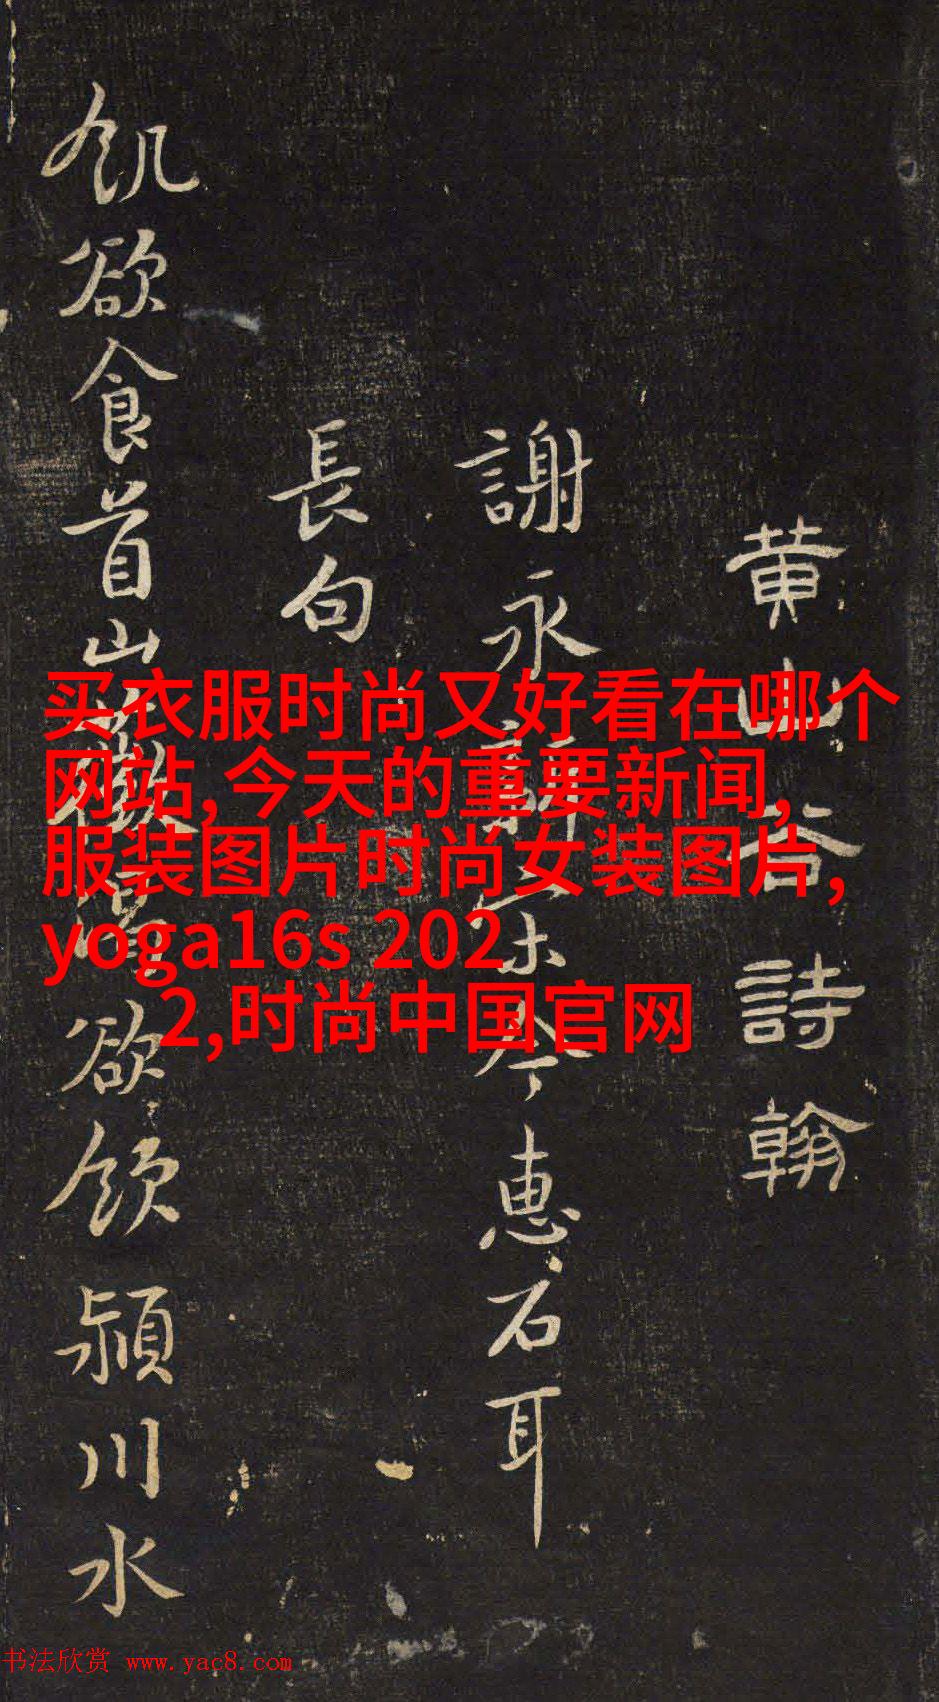 黄山谷詩翰
謝永今惠石耳
長句
飢欲食首山薇渴欲飲潁川水
买衣服时尚又好看在哪个
网站,今天的重要新闻,
服装图片时尚女装图片,
yoga16s 202
2,时尚中国官网
书法欣赏 www.yac8.com